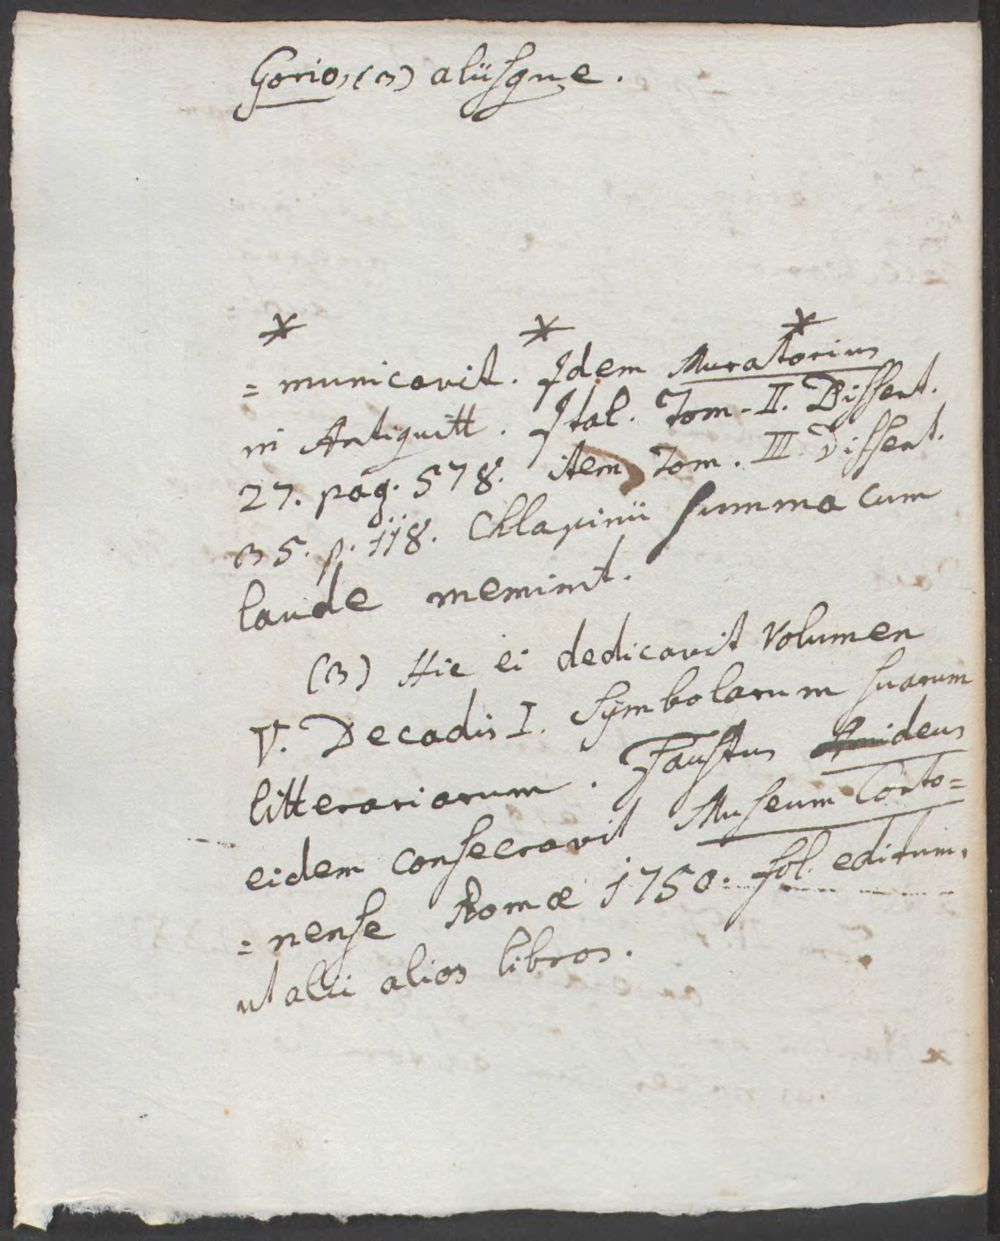 Gorio, (3) aliisque.
* * *
= municavit. Idem Muratorius
in Antiquitt. Ital. Tom. II. Dissert.
27. pag. 578. item Tom. III Dissert.
35. p. 118. Chlapinii summa cum
laude meminit.
(3) Hic ei dedicavit Volumen
V. Decadis I. Symbolarum suarum
litterariarum. Faustus deus
eidem consecravit Museum Corto=
= nense Romæ 1750. fol. editum.
ut alii alios libros.